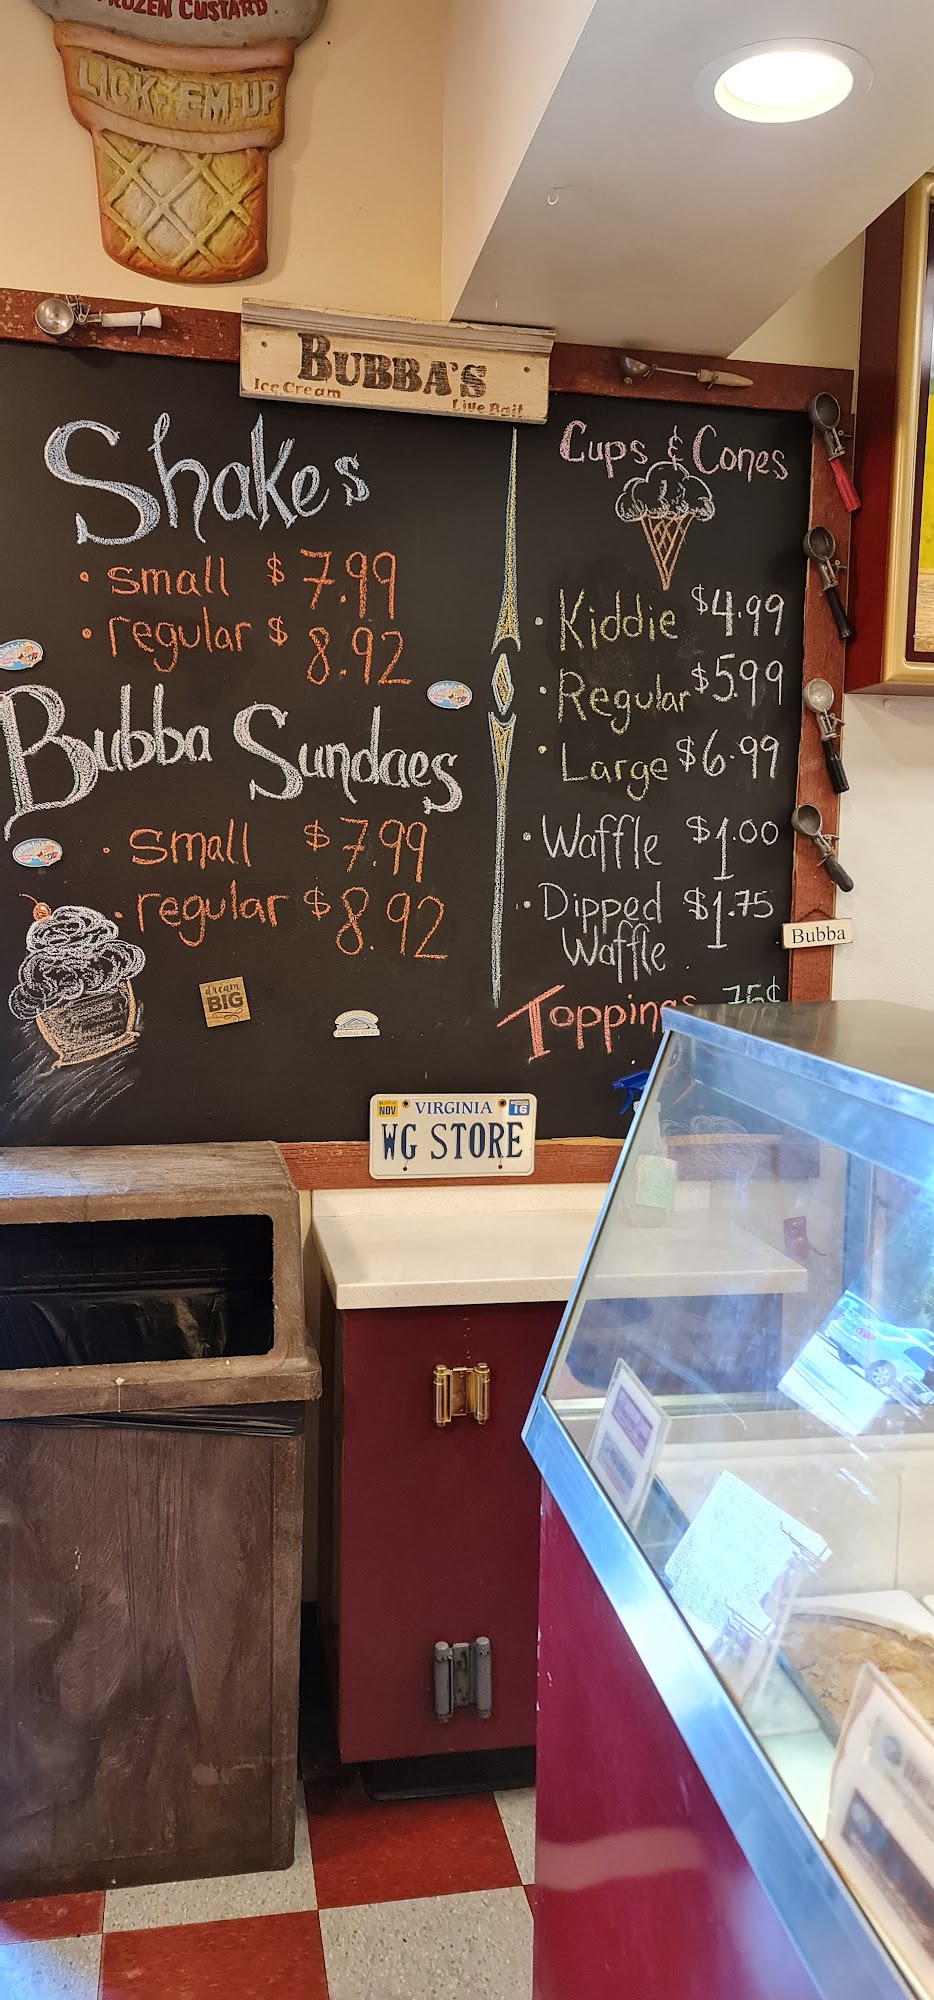 FROZEN CUSTARD
LICK-'EM-UP
BUBBA'S
Ice Cream
Live Bait
Shakes
• small $7.99
• regular $8.92
Bubba Sundaes
• small $7.99
• regular $8.92
dream
BIG
Cups & Cones
• Kiddie $4.99
• Regular $5.99
• Large $6.99
• Waffle $1.00
• Dipped $1.75
Waffle
Toppings 75¢
Bubba
NOV VIRGINIA 16
WG STORE